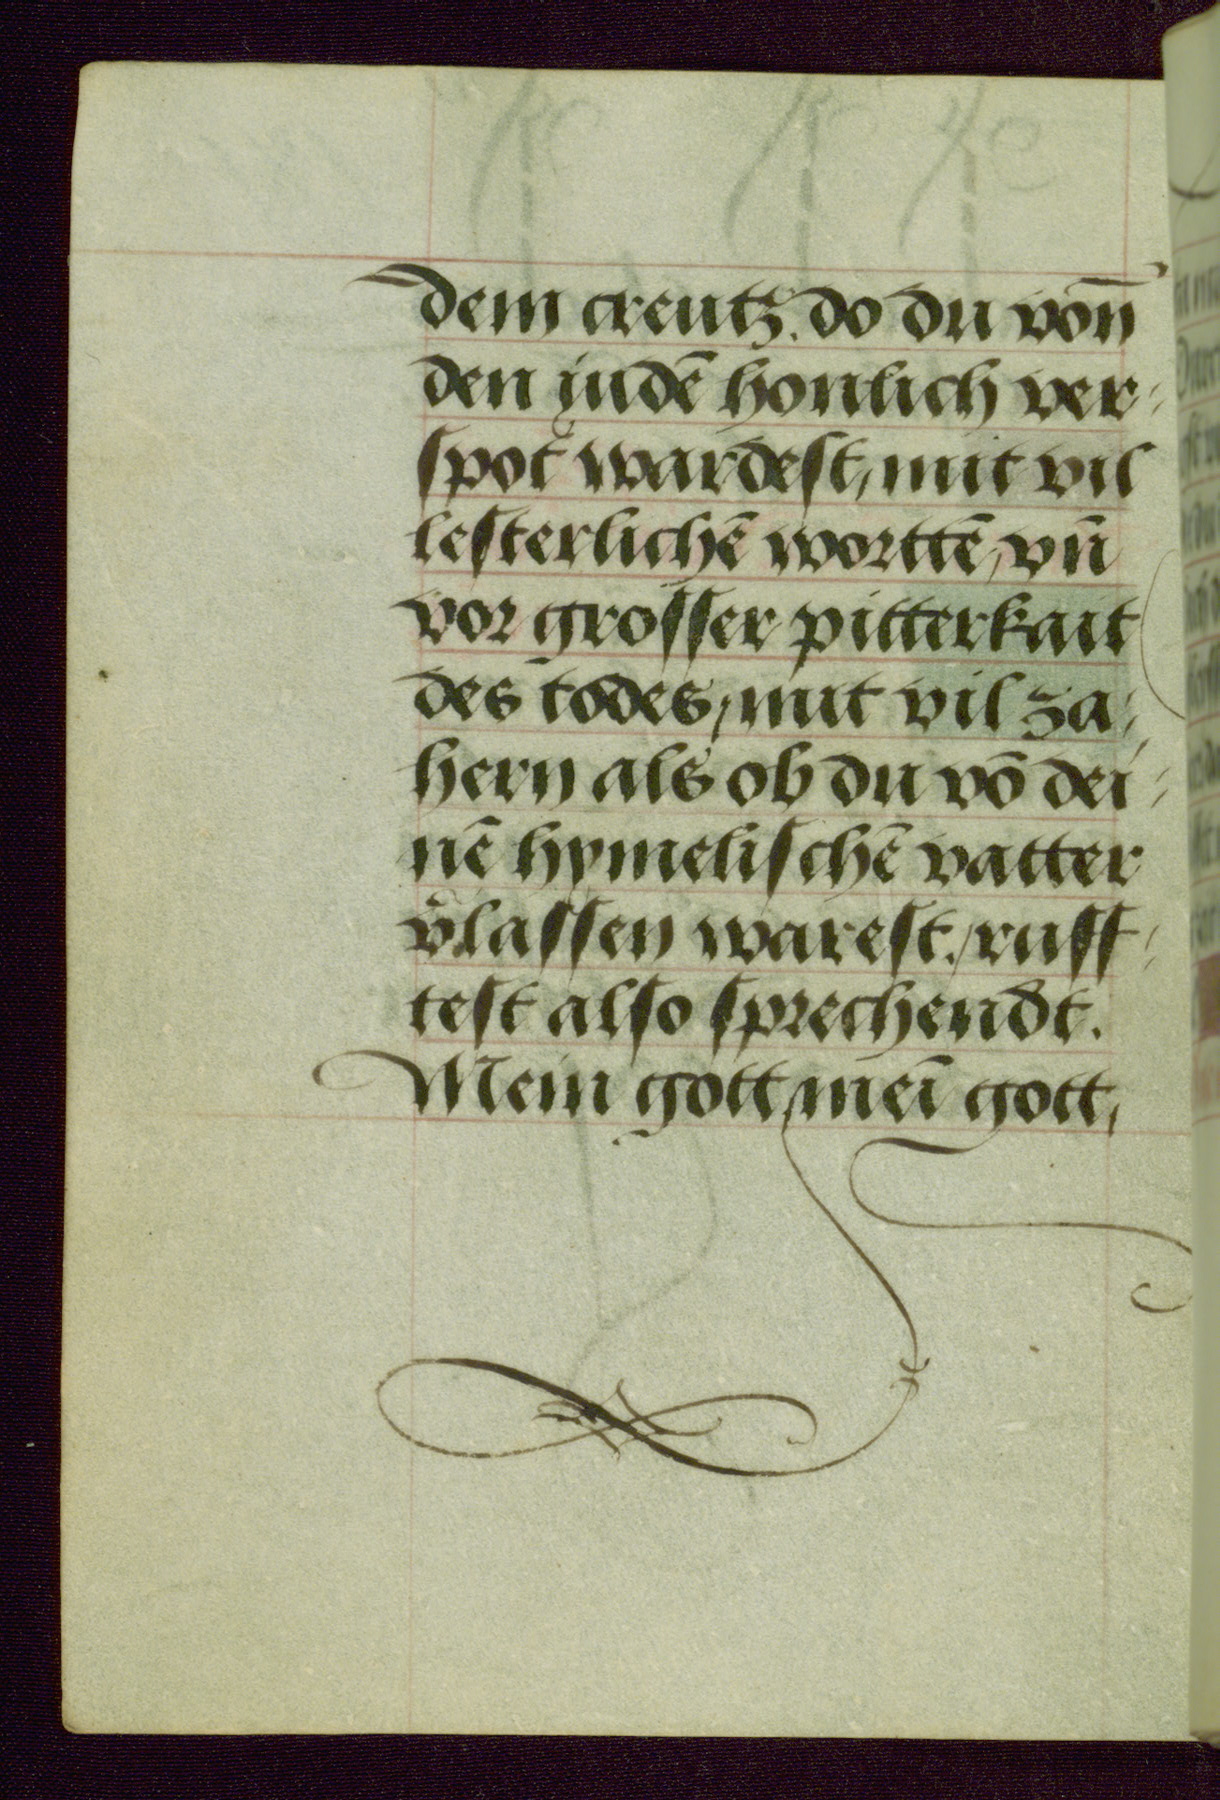 dem creutz. do du von̄
den judē honlich ver⸗
spot wardest, mit vil
lesterlichē worttē, vn̄
vor grosser pitterkait
des todes, mit vil za⸗
hern als ob du vō dei⸗
nē hymelischē vatter
v̾lassen warest., ruff⸗
test also sprechendt.
Mein gott, meī gott,